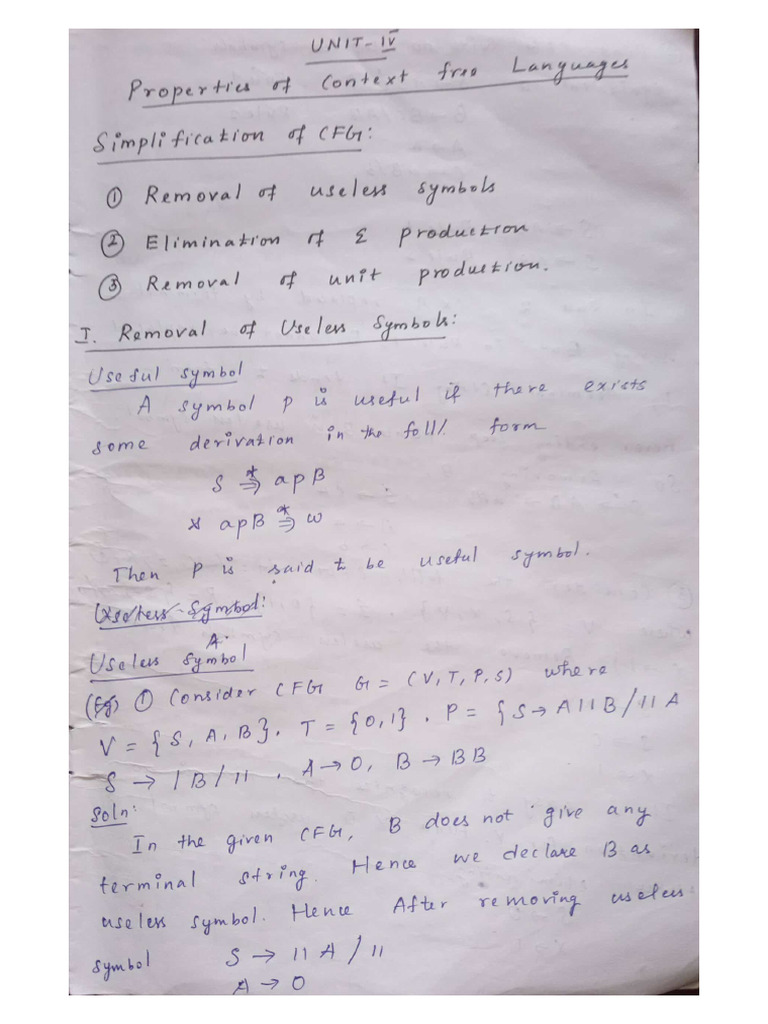 UNIT-IV
Properties of Context free Languages
Simplification of CFG:
① Removal of useless symbols
② Elimination of Ɛ production
③ Removal of unit production.
I. Removal of Useless Symbols:
Useful symbol
A symbol p is useful if there exists
some derivation in the foll/. form
S *⇒ apB
& apB *⇒ w
Then p is said to be useful symbol.
Useless Symbol:
A.
Useless Symbol
(Eg) ① Consider CFG G = (V, T, P, S) where
V = {S, A, B}. T = {0,1}. P = {S → A11B/11A
S → 1B/11 . A → 0, B → BB
Soln:
In the given CFG, B does not give any
terminal string. Hence we declare B as
useless symbol. Hence After removing useless
symbol S → 11A/11
A → 0